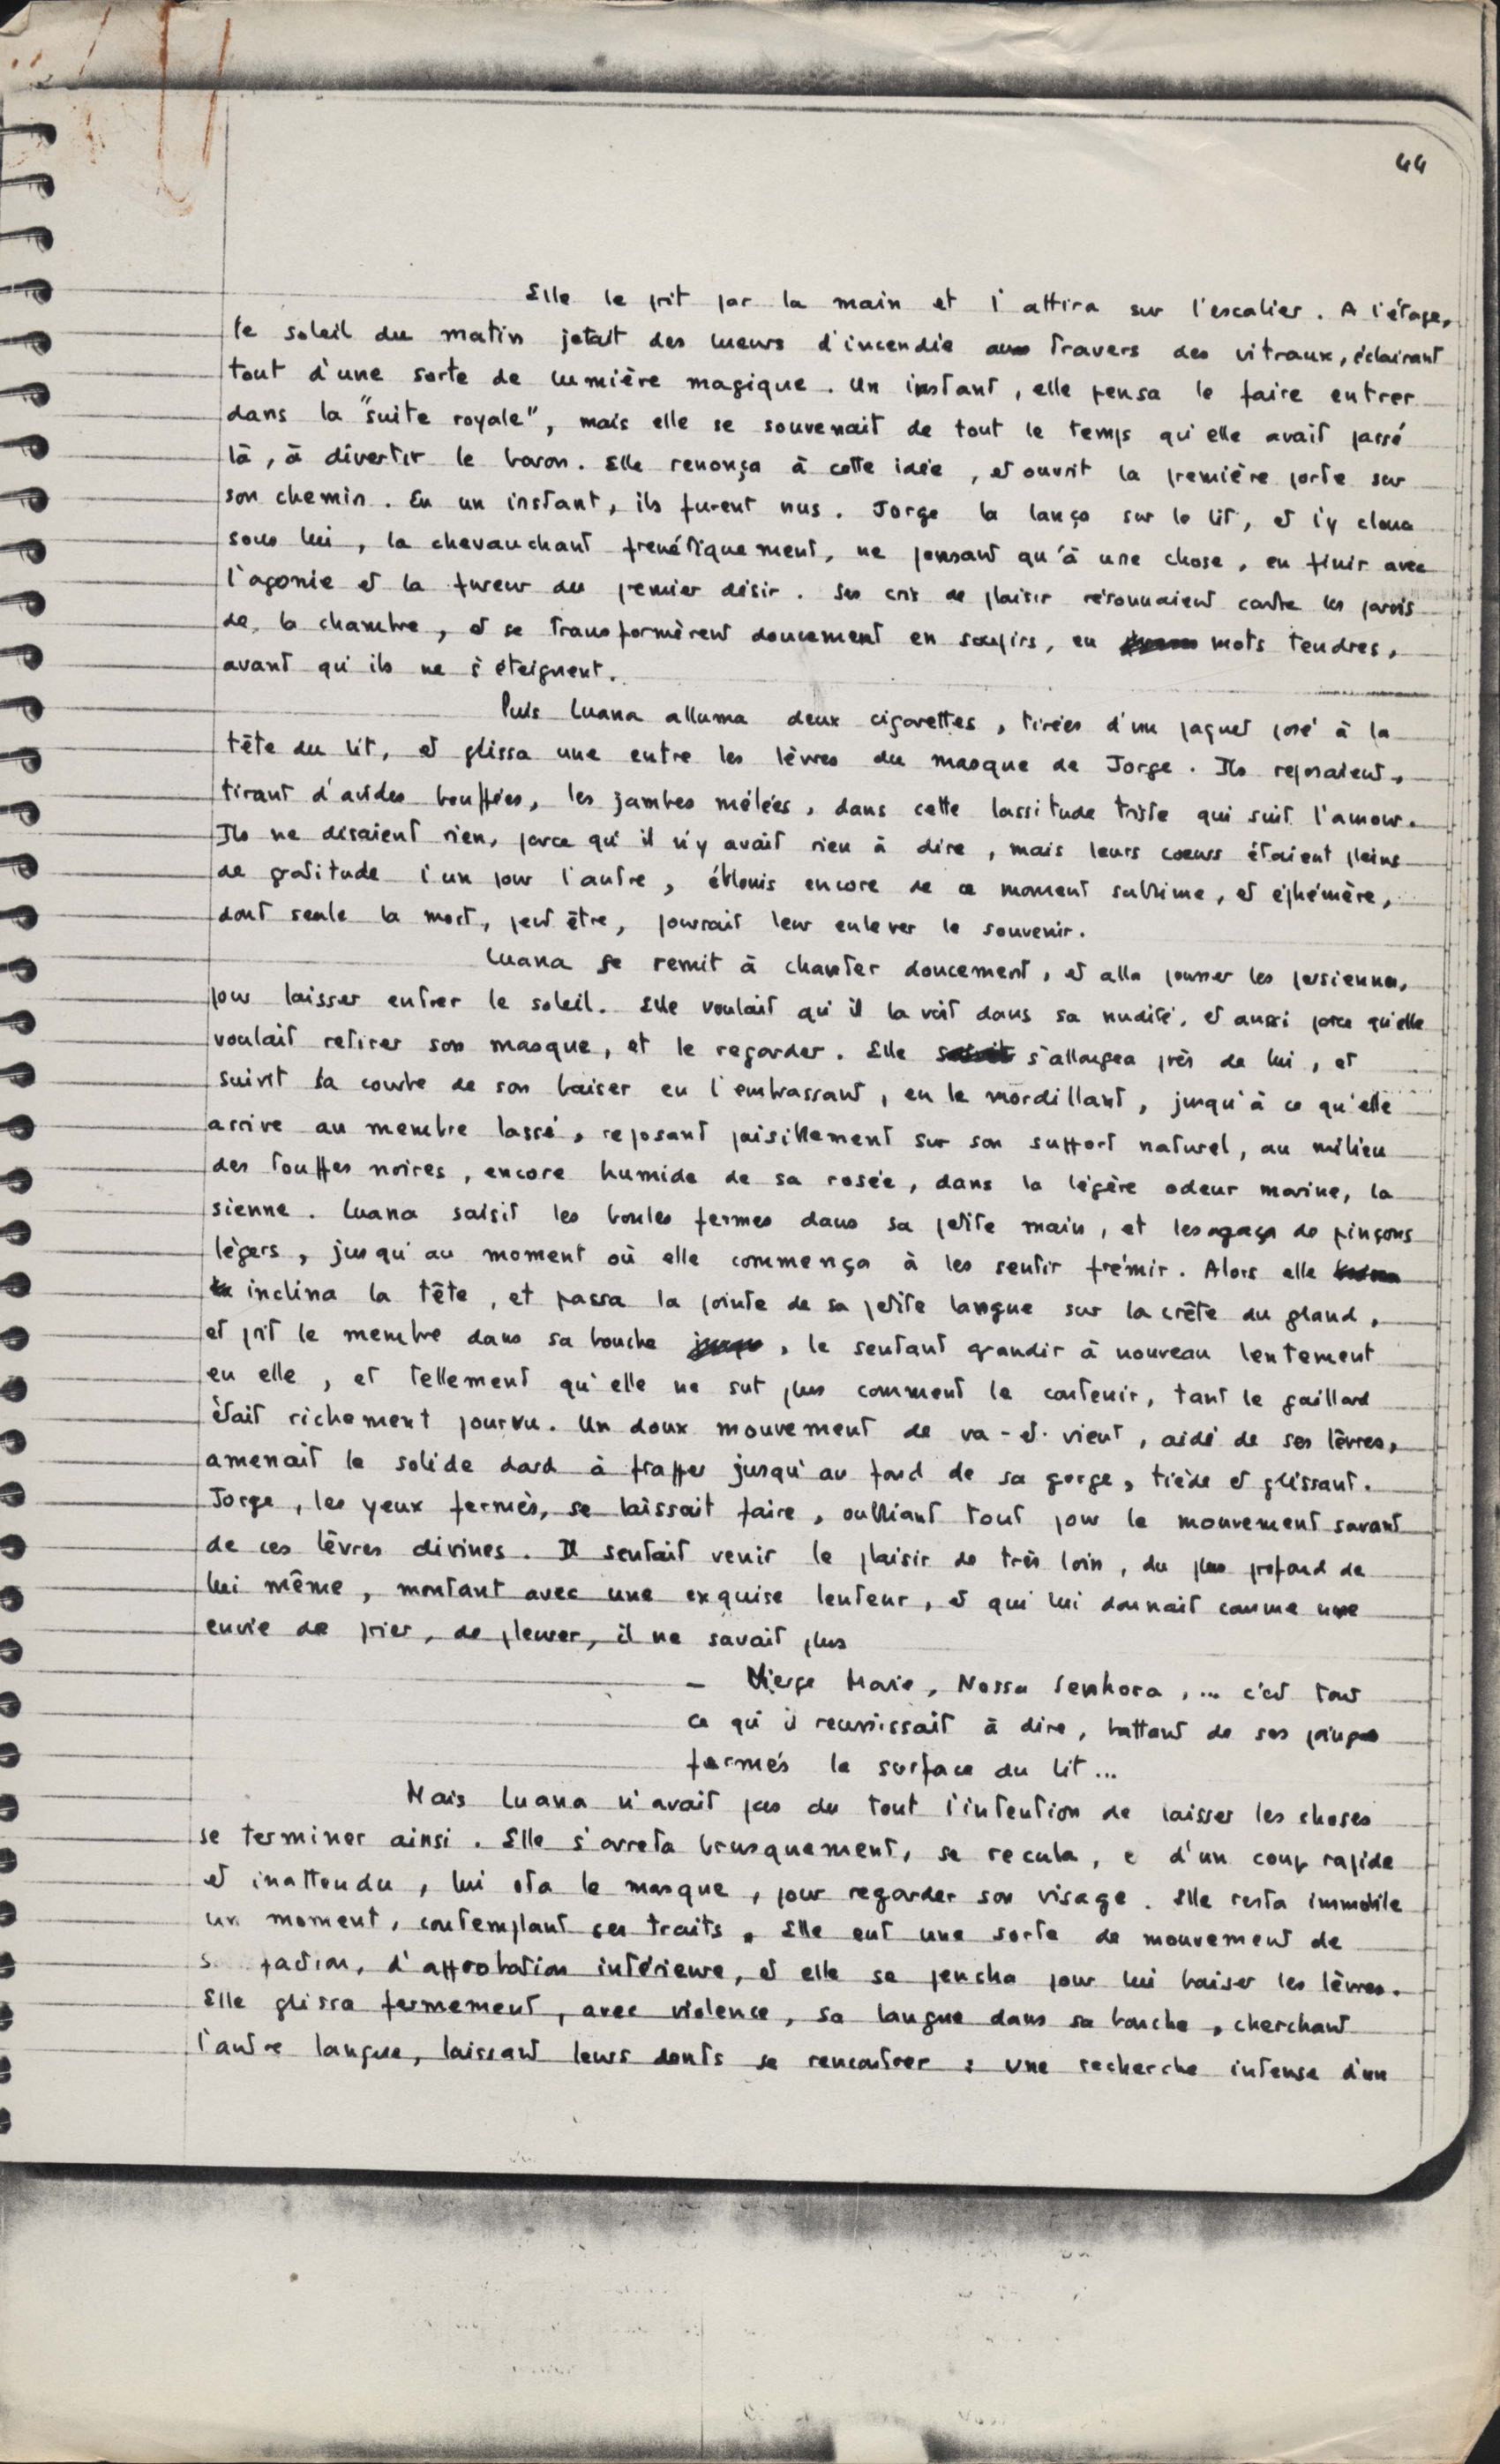 44
Elle le prit par la main et l'attira sur l'escalier. A l'étage,
le soleil du matin jetait des lueurs d'incendie au travers des vitraux, éclairant
tout d'une sorte de lumière magique. Un instant, elle pensa le faire entrer
dans la "suite royale", mais elle se souvenait de tout le temps qu'elle avait passé
là, à divertir le baron. Elle renonça à cette idée, et ouvrit la première porte sur
son chemin. En un instant, ils furent nus. Jorge la lança sur le lit, et l'y cloua
sous lui, la chevauchant frenétiquement, ne pensant qu'à une chose, en finir avec
l'agonie et la fureur du premier désir. Ses cris de plaisir résonnaient contre les parois
de la chambre, et se transformèrent doucement en soupirs, en mots tendres,
avant qu'ils ne s'éteignent.
Puis Luana alluma deux cigarettes, tirées d'un paquet posé à la
tête du lit, et glissa une entre les lèvres du masque de Jorge. Ils reposaient,
tirant d'avides bouffées, les jambes mélées, dans cette lassitude triste qui suit l'amour.
Ils ne disaient rien, parce qu'il n'y avait rien à dire, mais leurs coeurs étaient pleins
de gratitude l'un pour l'autre, éblouis encore de ce moment sublime, et éphémère,
dont seule la mort, peut être, pourrait leur enlever le souvenir.
Luana se remit à chanter doucement, et alla pousser les persiennes,
pour laisser entrer le soleil. Elle voulait qu'il la voit dans sa nudité, et aussi parce qu'elle
voulait retirer son masque, et le regarder. Elle s'allongea près de lui, et
suivit la courbe de son baiser en l'embrassant, en le mordillant, jusqu'à ce qu'elle
arrive au membre lassé, reposant paisiblement sur son support naturel, au milieu
des touffes noires, encore humide de sa rosée, dans la légère odeur marine, la
sienne. Luana saisit les boules fermes dans sa petite main, et les agaça de pinçons
légers, jusqu'au moment où elle commença à les sentir frémir. Alors elle
inclina la tête, et passa la pointe de sa petite langue sur la crête du gland,
et prit le membre dans sa bouche, le sentant grandir à nouveau lentement
en elle, et tellement qu'elle ne sut plus comment le contenir, tant le gaillard
était richement pourvu. Un doux mouvement de va-et-vient, aidé de ses lèvres,
amenait le solide dard à frapper jusqu'au fond de sa gorge, tiède et glissant.
Jorge, les yeux fermés, se laissait faire, oubliant tout pour le mouvement savant
de ces lèvres divines. Il sentait venir le plaisir de très loin, du plus profond de
lui même, montant avec une exquise lenteur, et qui lui donnait comme une
envie de prier, de pleurer, il ne savait plus
- Vierge Marie, Nossa Senhora, ... c'est tout
ce qu'il reussissait à dire, battant de ses poings
fermés la surface du lit...
Mais Luana n'avait pas du tout l'intention de laisser les choses
se terminer ainsi. Elle s'arreta brusquement, se recula, e d'un coup rapide
et inattendu, lui ota le masque, pour regarder son visage. Elle resta immobile
un moment, contemplant ces traits. Elle eut une sorte de mouvement de
d'approbation intérieure, et elle se pencha pour lui baiser les lèvres.
Elle glissa fermement, avec violence, sa langue dans sa bouche, cherchant
l'autre langue, laissant leurs dents se rencontrer : une recherche intense d'un